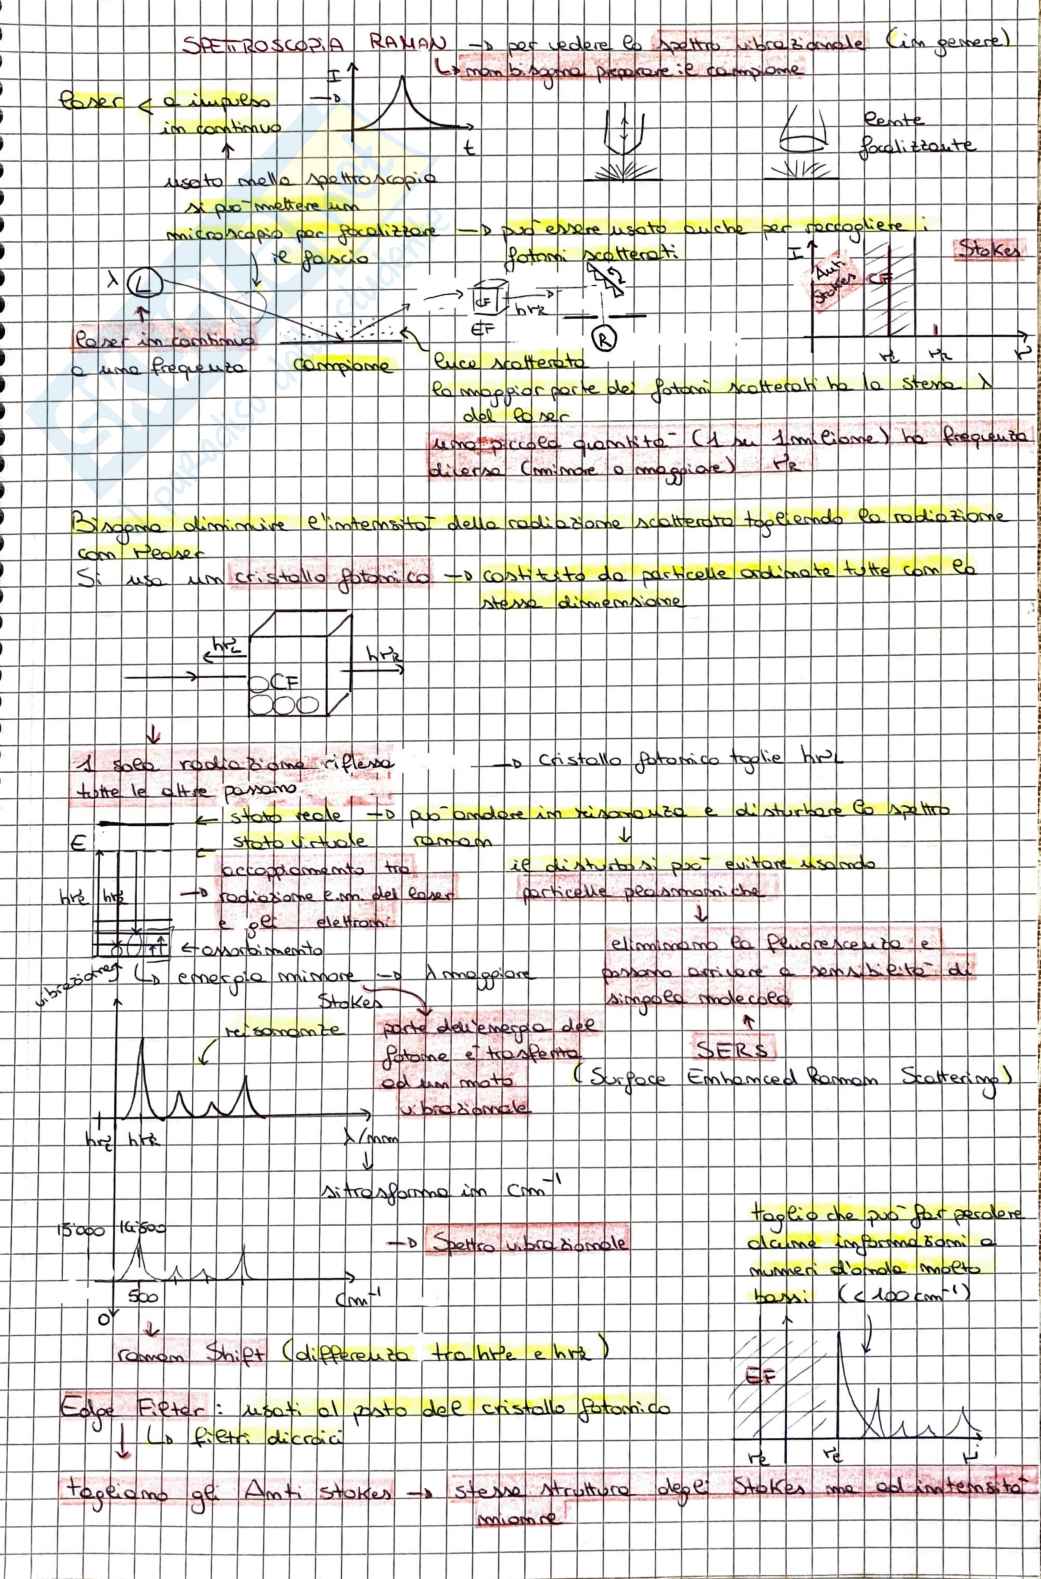 SPETTROSCOPIA RAMAN → per vedere lo spettro vibrazionale (in genere)
↳ non bisogna preparare il campione
laser < a impulso →
in continuo
I
t
lente
focalizzante
usato nella spettroscopia
si può mettere un
microscopio per focalizzare → può essere usato anche per raccogliere i
il fascio
fotoni scatterati
λ L
CF
EF
hνr
R
I
Anti
Stokes
CF
Stokes
νl
νr
ν
laser in continuo
a una frequenza
campione
luce scatterata
la maggior parte dei fotoni scatterati ha la stessa λ
del laser
una piccola quantità (1 su 1 milione) ha frequenza
diversa (minore o maggiore) νR
Bisogna diminuire l'intensità della radiazione scatterata togliendo la radiazione
con νlaser
Si usa un cristallo fotonico → costituito da particelle ordinate tutte con la
stessa dimensione
hνL
hνR
CF
1 sola radiazione riflessa
tutte le altre passano
→ cristallo fotonico toglie hνL
← stato reale → può andare in risonanza e disturbare lo spettro
E
stato virtuale
raman
accoppiamento tra
→ radiazione e.m. del laser
e gli elettroni
il disturbo si può evitare usando
particelle plasmoniche
hνL hνR
← assorbimento
eliminano la fluorescenza e
possono arrivare a sensibilità di
singola molecola
vibrazionali
↳ energia minore → λ maggiore
Stokes
risonanze
parte dell'energia del
fotone è trasferita
ad un moto
vibrazionale
SERS
(Surface Enhanced Raman Scattering)
hνL hνR
λ/nm
si trasforma in cm⁻¹
15'000 14'500
→ Spettro vibrazionale
500
cm⁻¹
0
taglio che può far perdere
alcune informazioni a
numeri d'onda molto
bassi (<100cm⁻¹)
raman Shift (differenza tra hνl e hνr)
EF
Edge Filter: usati al posto del cristallo fotonico
↳ filtri dicroici
νl
νl
ν
tagliano gli Anti stokes → stessa struttura degli Stokes ma ad intensità
mionre